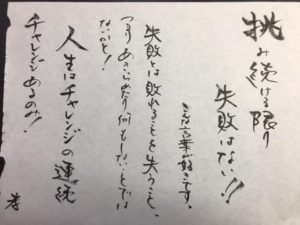 挑み続ける限り
失敗はない!!
こんな言葉が好きです。
失敗とは敗れることを失うこと。
つまりあきらめたり、何もしないことでは
ないかと!
人生はチャレンジの連続
チャレンジあるのみ!